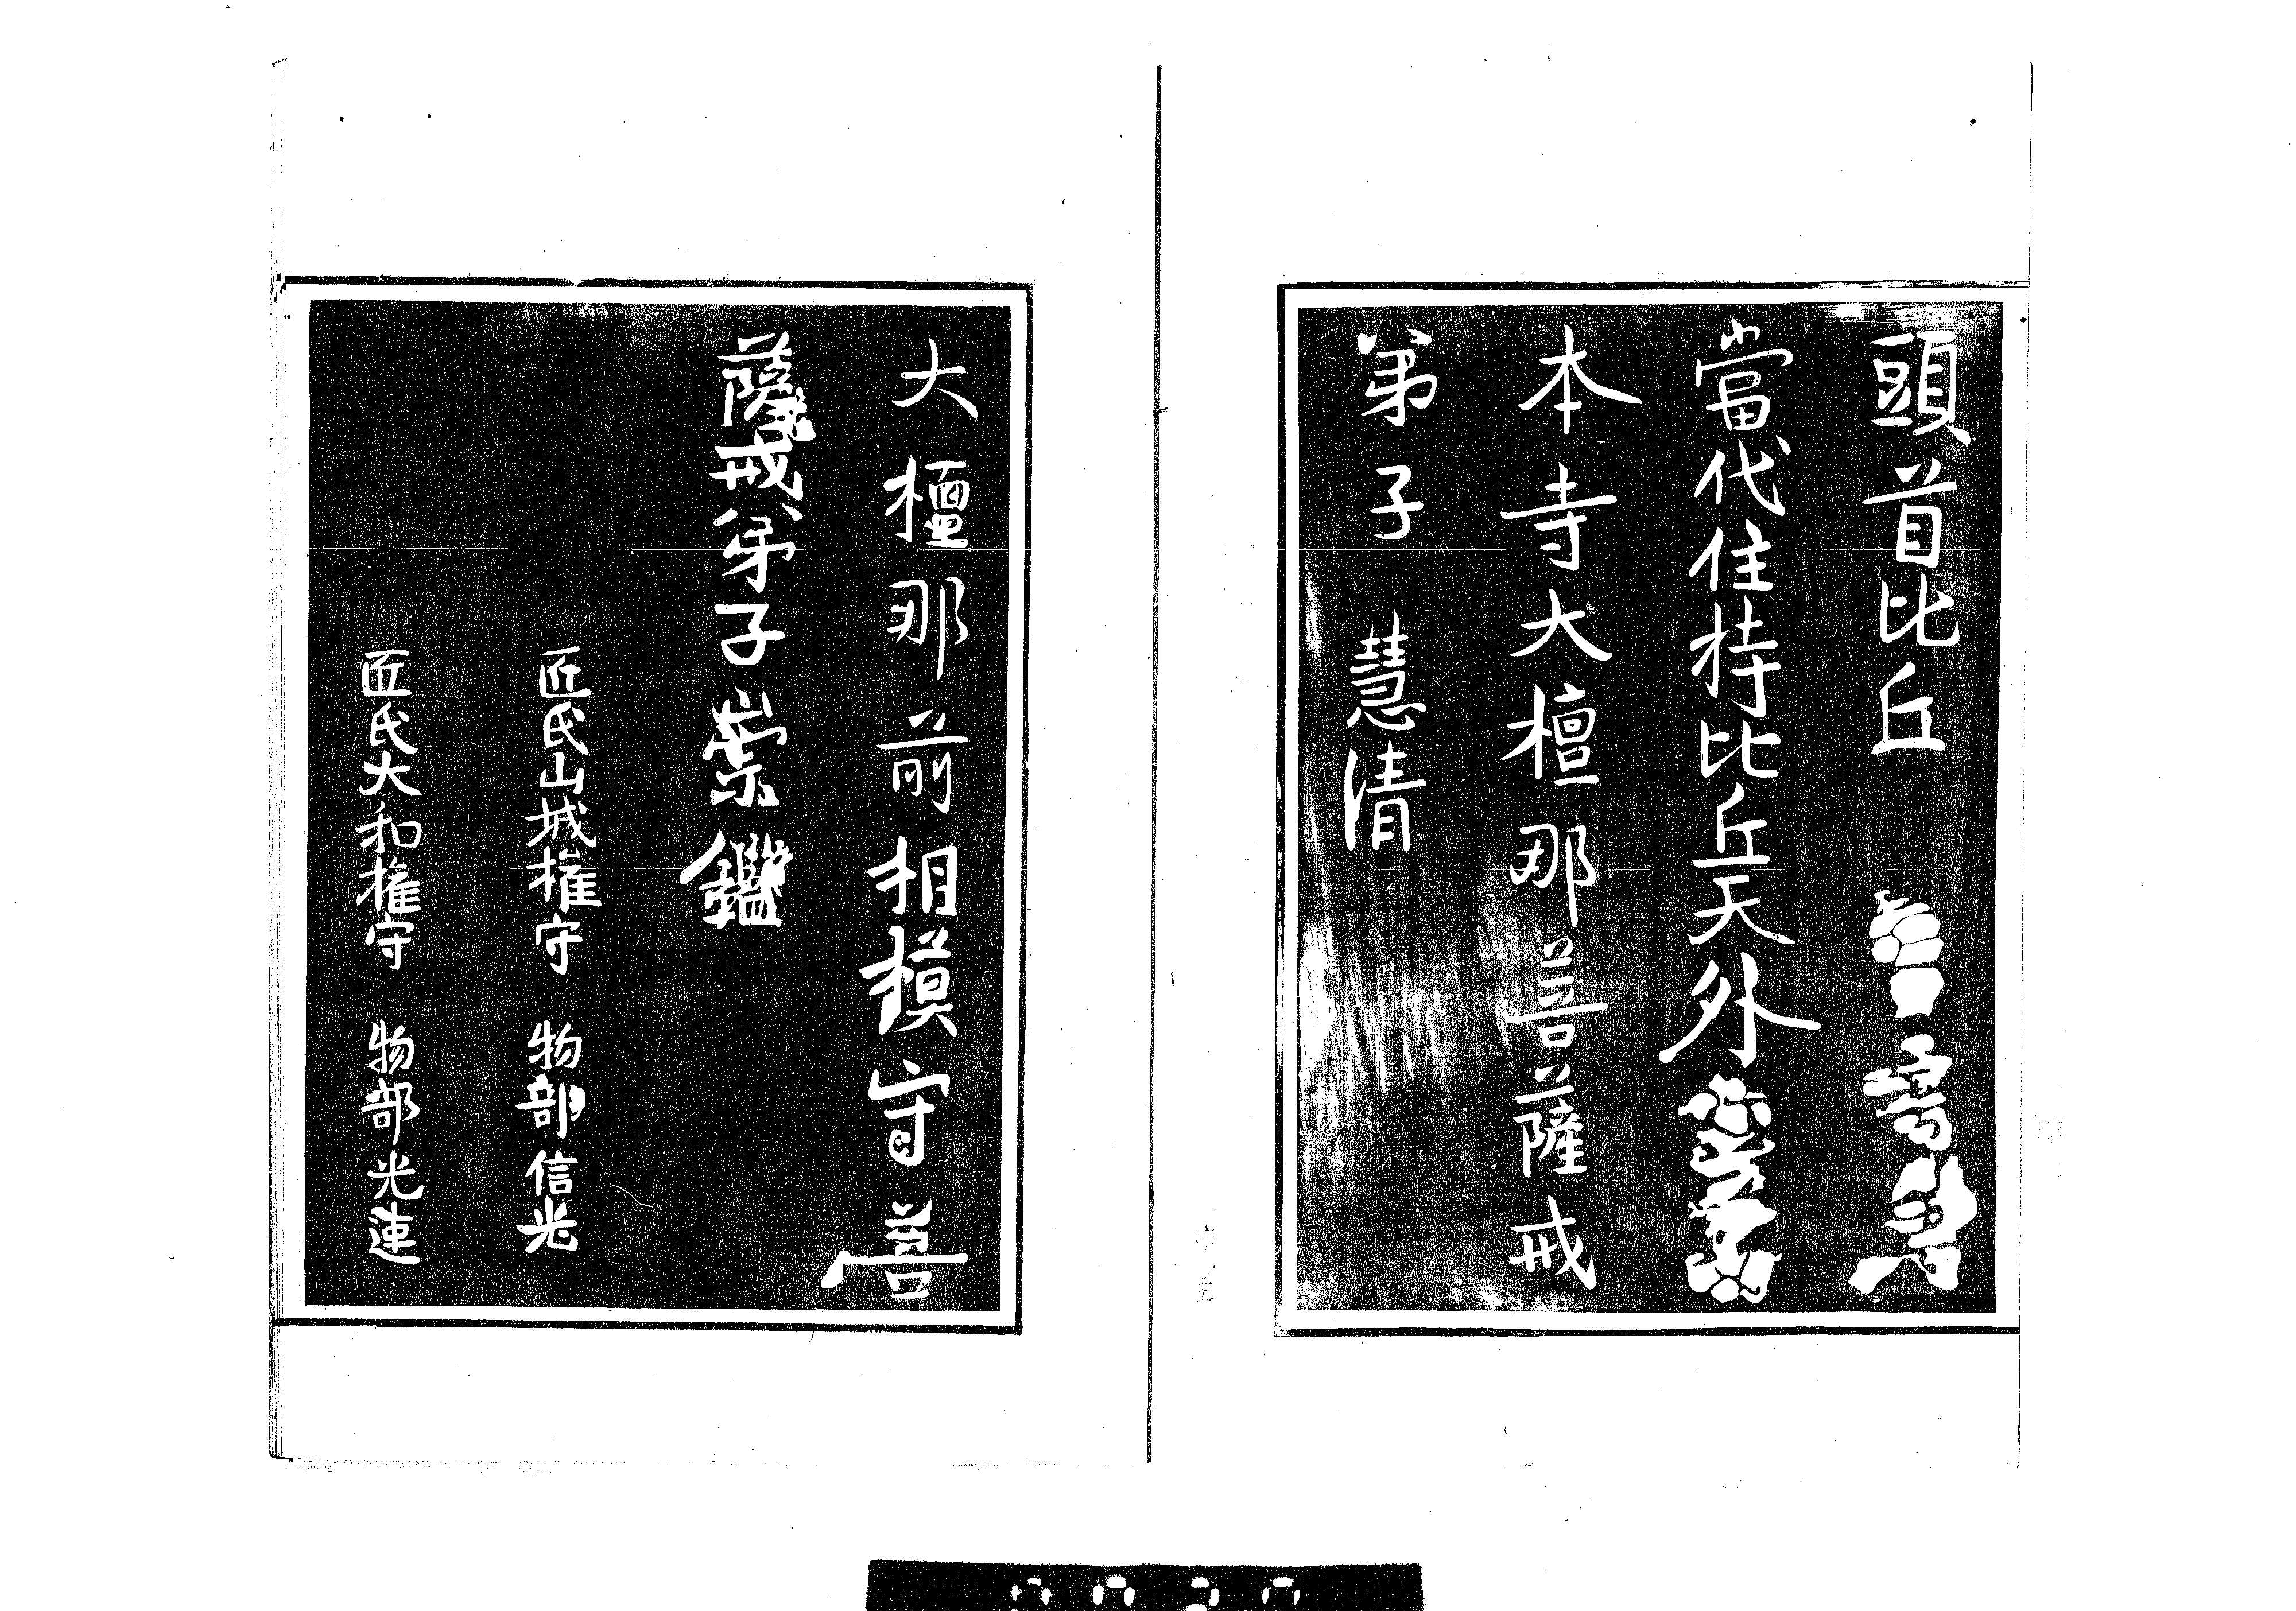 頭首比丘
當代住持比丘天外
本寺大檀那菩薩戒
弟子 慧清
大檀那前相模守菩
薩戒弟子崇鑑
匠氏山城權守 物部信光
匠氏大和權守 物部光連